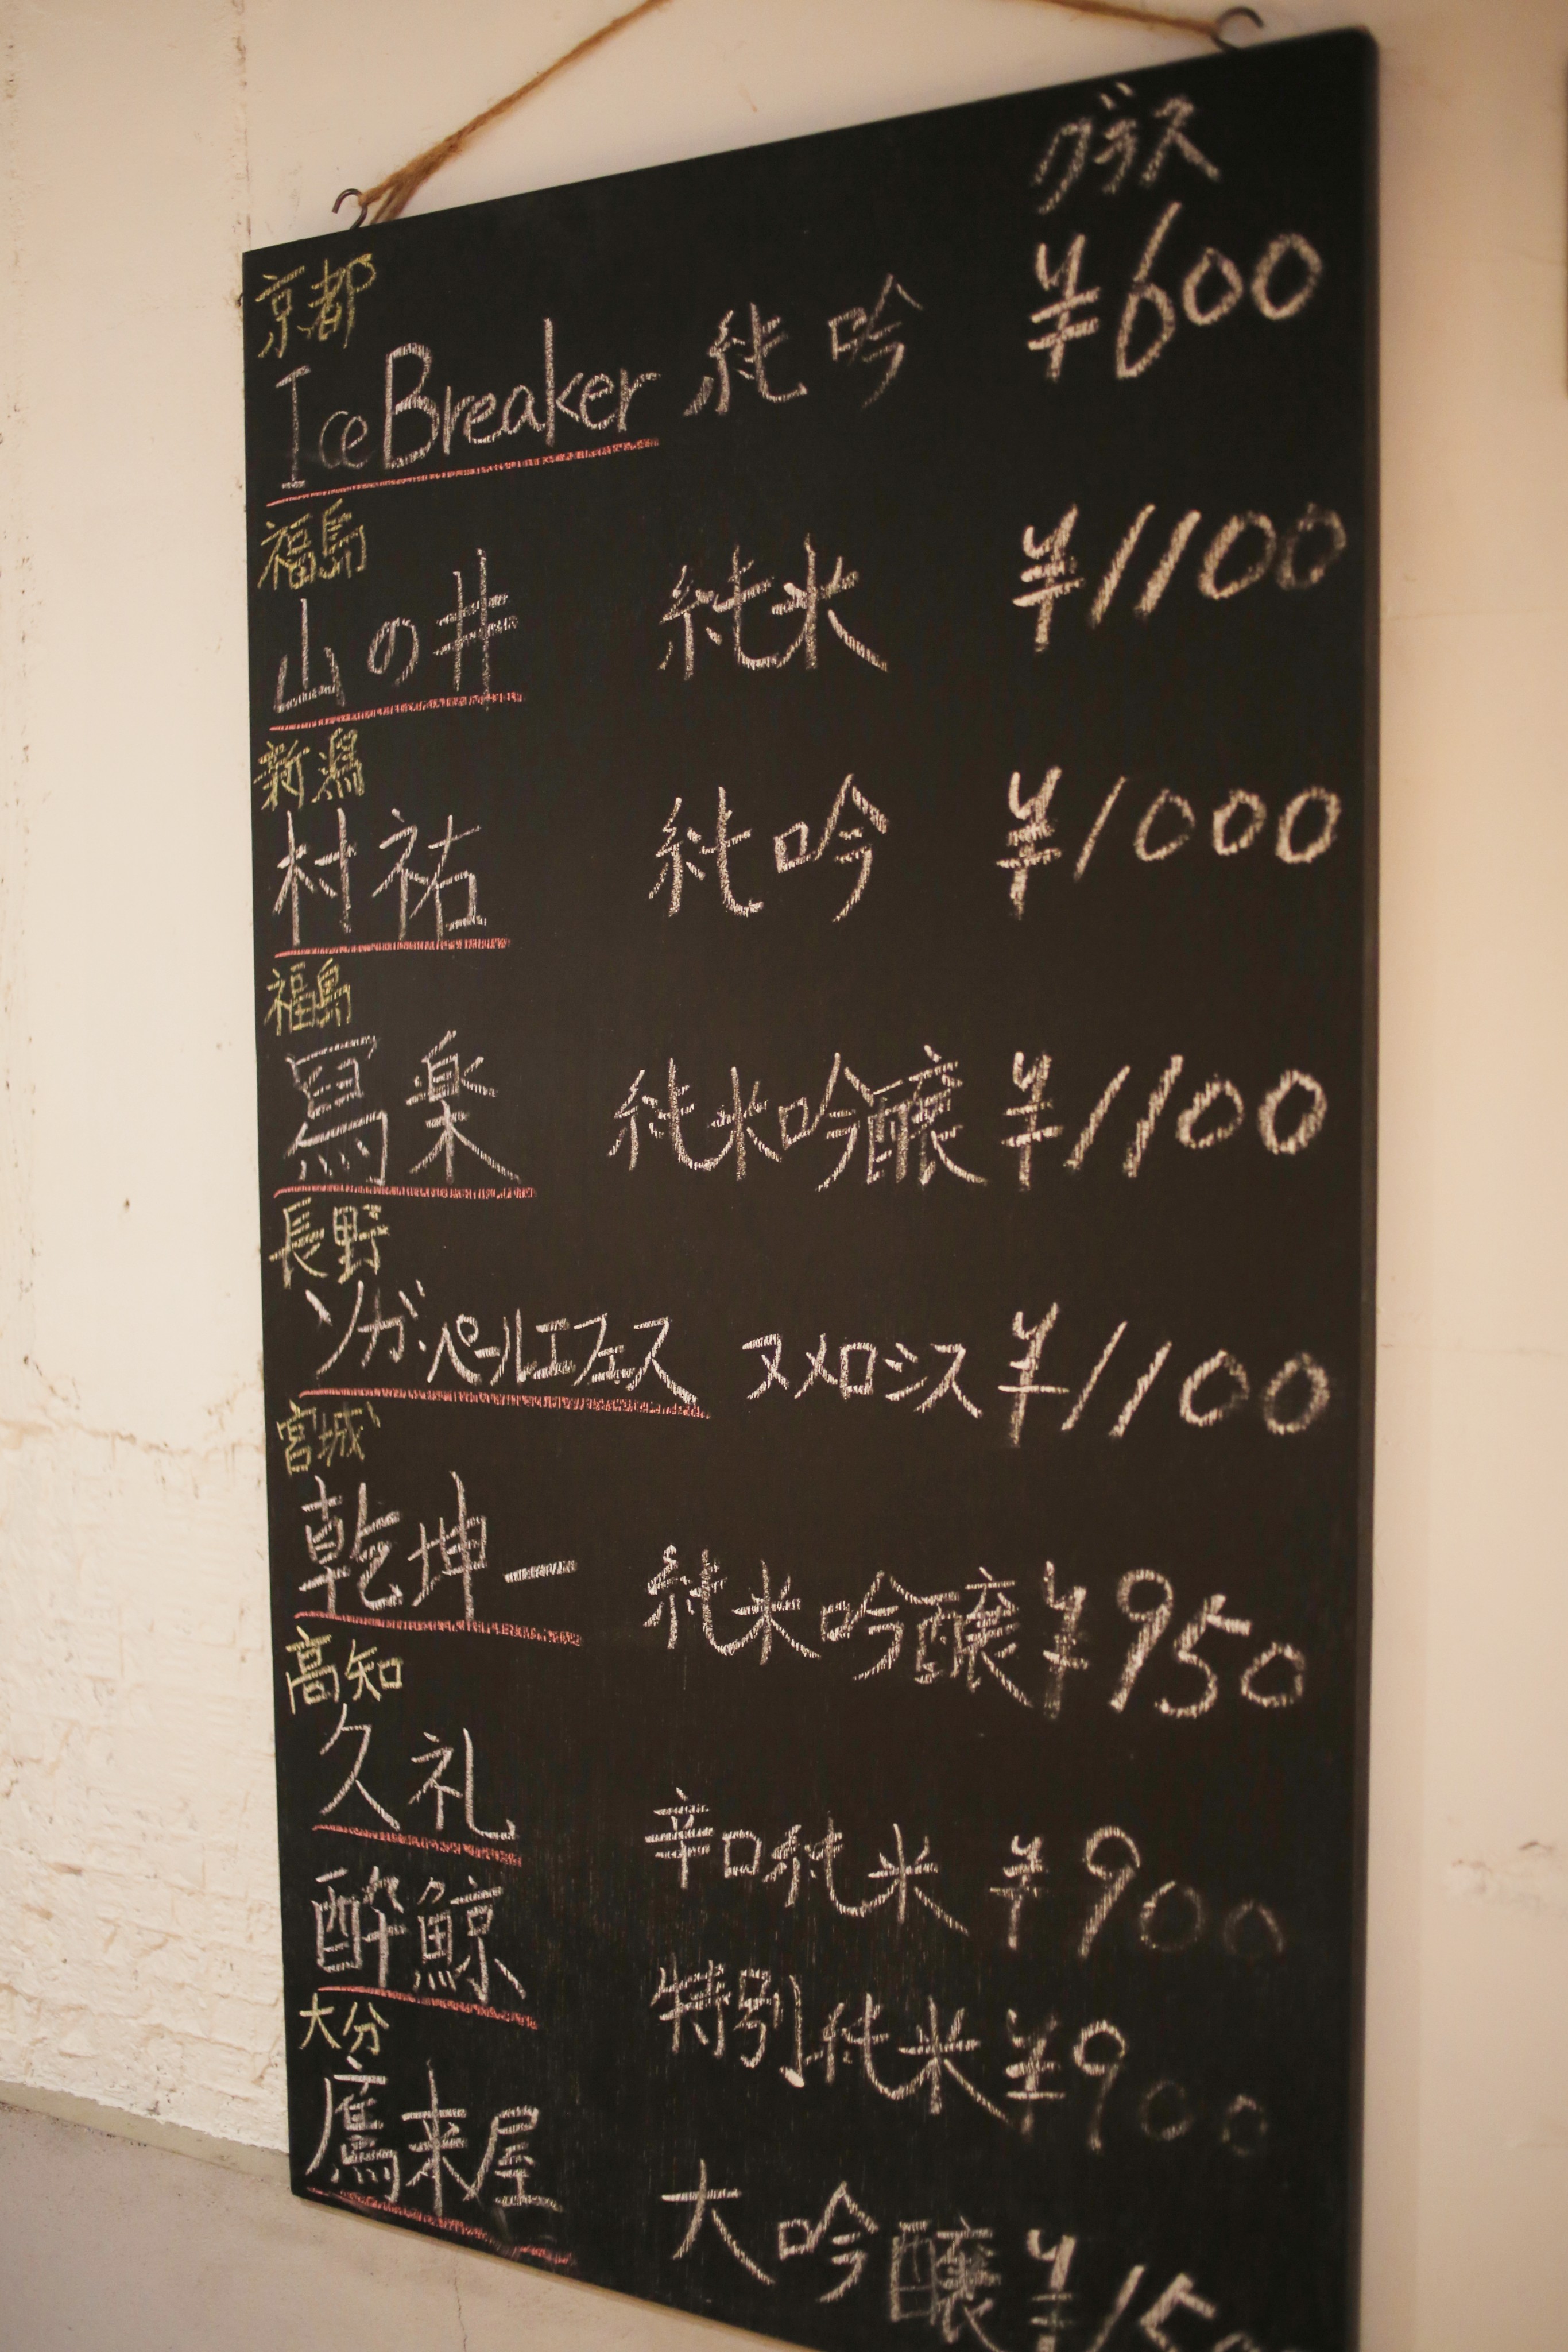 グラス
京都
Ice Breaker 純吟 ¥600
福島
山の井 純米 ¥1100
新潟
村祐 純吟 ¥1000
福島
冩楽 純米吟醸 ¥1100
長野
ソガ・ペールエフェス ヌメロシス ¥1100
宮城
乾坤一 純米吟醸 ¥950
高知
久礼 辛口純米 ¥900
酔鯨 特別純米 ¥900
大分
鷹来屋 大吟醸